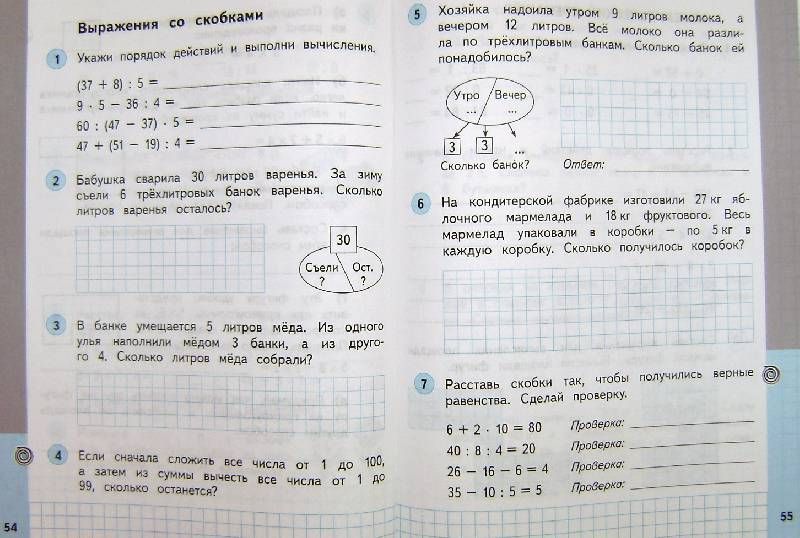 Выражения со скобками
1 Укажи порядок действий и выполни вычисления.
(37 + 8) : 5 =
9 · 5 − 36 : 4 =
60 : (47 − 37) · 5 =
47 + (51 − 19) : 4 =
2 Бабушка сварила 30 литров варенья. За зиму
съели 6 трёхлитровых банок варенья. Сколько
литров варенья осталось?
30
Съели Ост.
? ?
3 В банке умещается 5 литров мёда. Из одного
улья наполнили мёдом 3 банки, а из друго-
го 4. Сколько литров мёда собрали?
4 Если сначала сложить все числа от 1 до 100,
а затем из суммы вычесть все числа от 1 до
99, сколько останется?
54
5 Хозяйка надоила утром 9 литров молока, а
вечером 12 литров. Всё молоко она разли-
ла по трёхлитровым банкам. Сколько банок ей
понадобилось?
Утро Вечер
... ...
3 3 ...
Сколько банок? Ответ:
6 На кондитерской фабрике изготовили 27 кг яб-
лочного мармелада и 18 кг фруктового. Весь
мармелад упаковали в коробки — по 5 кг в
каждую коробку. Сколько получилось коробок?
7 Расставь скобки так, чтобы получились верные
равенства. Сделай проверку.
6 + 2 · 10 = 80 Проверка:
40 : 8 : 4 = 20 Проверка:
26 − 16 − 6 = 4 Проверка:
35 − 10 : 5 = 5 Проверка:
55